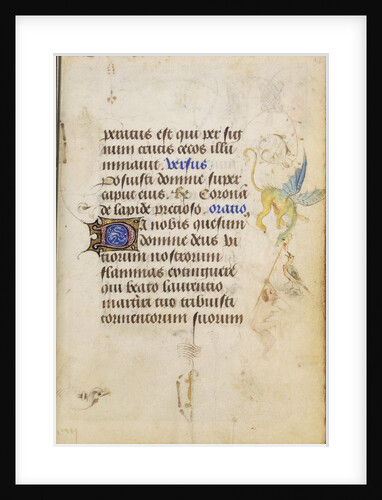 peratus est qui per sig
num crucis cecos illu
minauit. Versus
Posuisti domine super
caput eius. Coronā
de lapide precioso. oratio.
Da nobis quesum
domine deus vi
tiorum nostrorum
flammas extinguere
qui beato laurentio
martiri tuo tribuisti
tormentorum suorum